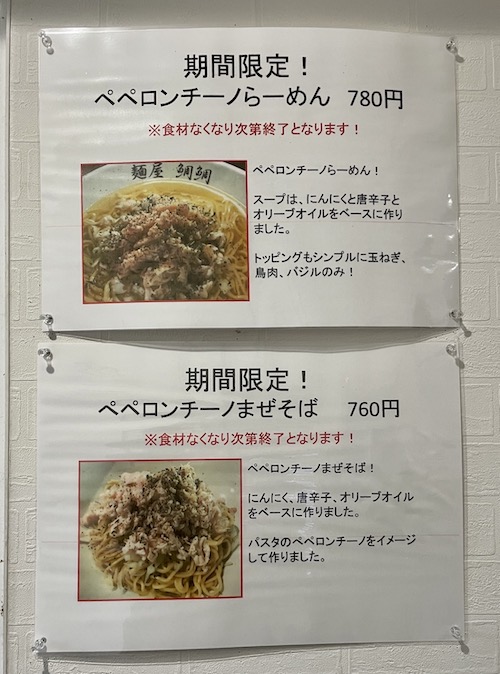 期間限定！
ペペロンチーノらーめん 780円
※食材なくなり次第終了となります！
麺屋 鯛鯛
ペペロンチーノらーめん！
スープは、にんにくと唐辛子と
オリーブオイルをベースに作り
ました。
トッピングもシンプルに玉ねぎ、
鳥肉、バジルのみ！
期間限定！
ペペロンチーノまぜそば 760円
※食材なくなり次第終了となります！
ペペロンチーノまぜそば！
にんにく、唐辛子、オリーブオイル
をベースに作りました。
パスタのペペロンチーノをイメージ
して作りました。